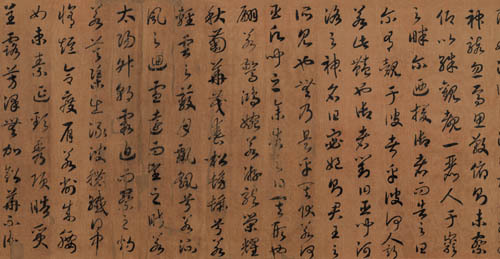 神駭忽焉思散俯則未察
仰以殊觀覩一麗人于巖
之畔尔迺援御者而告之曰
尔有覿于彼者乎彼何人斯
若此豔也御者對曰臣聞河
洛之神名曰宓妃則君王之
所見也無乃是乎其狀若何
臣願聞之余告之曰其形也
翩若驚鴻婉若游龍榮耀
秋菊華茂春松髣髴兮若
輕雲之蔽月飄颻兮若流
風之迴雪遠而望之皎若
太陽升朝霞迫而察之灼
若芙蕖出淥波穠纖得中
脩短合度肩若削成腰
如束素延頸秀項皓質
呈露芳澤無加鉛華不御